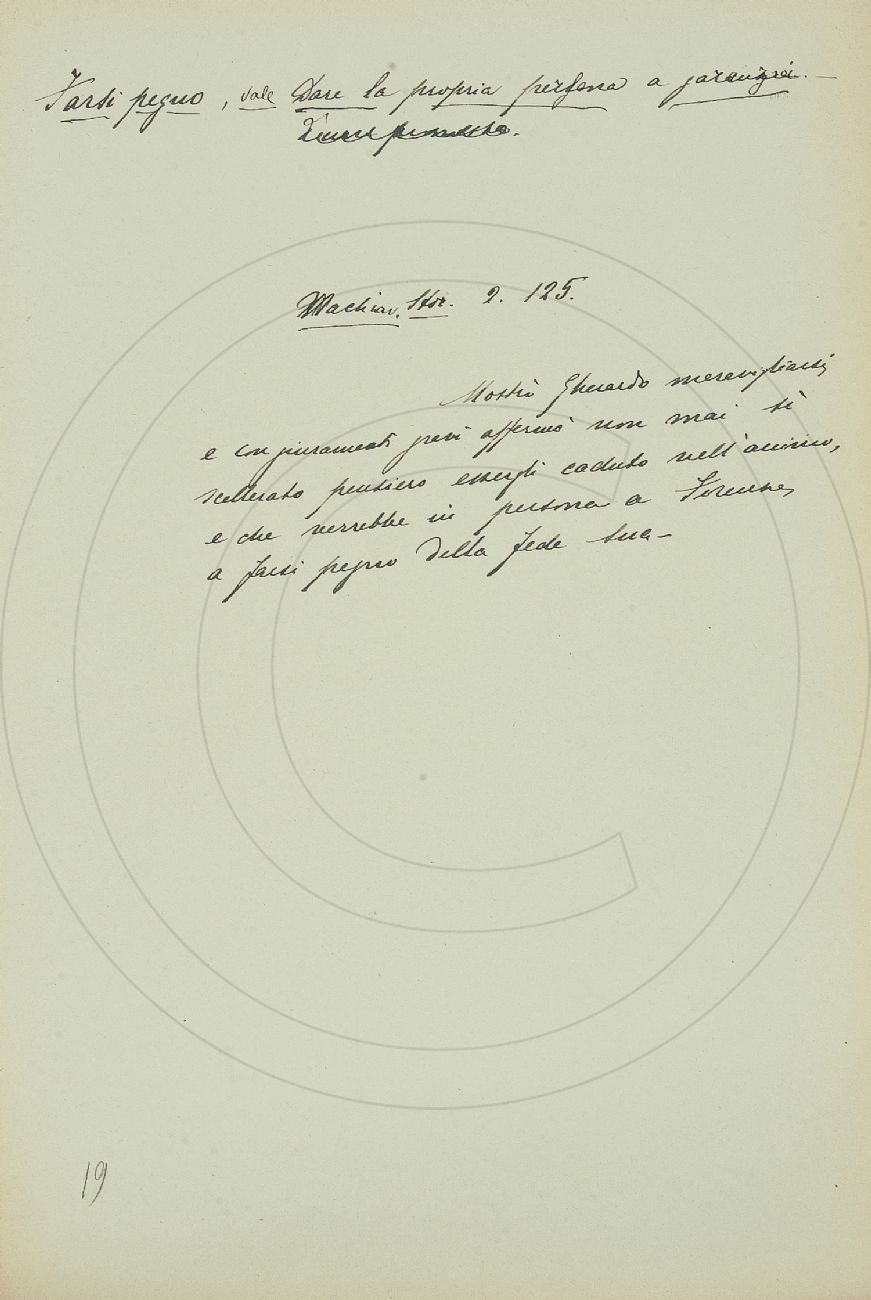 Farsi pegno, vale Dare la propria persona a garanzia. —
Machiav. Stor. 2. 125.
Mostrò Gherardo meravigliarsi,
e con giuramenti gravi affermò non mai sì
scellerato pensiero essergli caduto nell'animo,
e che verrebbe in persona a Firenze,
a farsi pegno della fede sua —
19